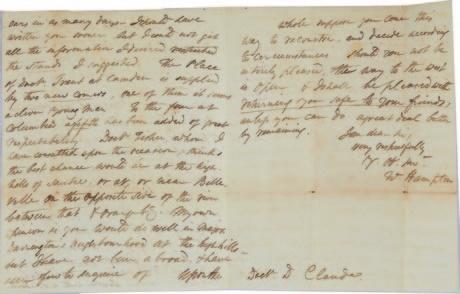 ours in as many days. I could have
written you sooner but I could not get
all the information I desired
the stands I suggested. The Place
of Doct. Trent at Camden is supplied
by two new comers, one of them it seems
a clever young man. To the four at
Columbia a fifth has been added of great
respectability. Doct Fisher whom I
have consulted upon the occasion, thinks
the best chance would be at the high
hills of Santee, or at, or near Belle-
ville on the opposite side of the river
between that & Orangeby. My own
opinion is you would do well in Major
neighbourhood at the high hills -
but I have not been abroad, & have
seen few to enquire of
Upon the
whole suppose you come this
way to reconnoitre and decide according
to circumstances should you not be
entirely pleased, the way to the west
is open & I shall be pleased with
returning you safe to your friends,
unless you can do a great deal better
by remaining.
I am dear sir,
very respectfully
Y H Sert
W Hampton
Doct D Claude